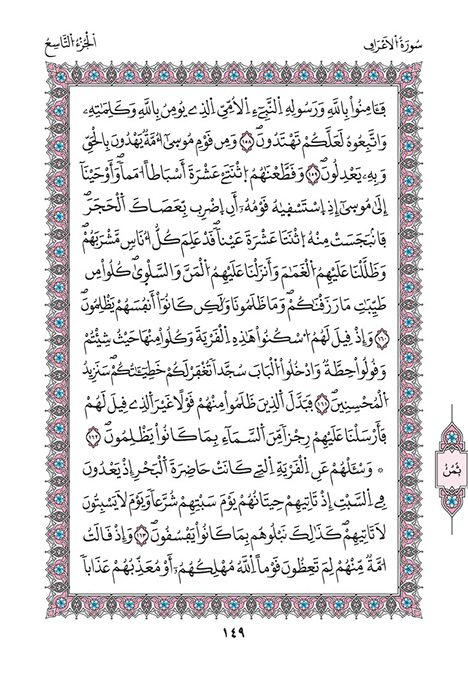 سُورَةُ الْأَعْرَافِ
الْجُزْءُ التَّاسِعُ
فَـَٔامِنُواْ بِاللَّهِ وَرَسُولِهِ اِلنَّبِيٓءِ اِلُامِّيِّ اِلذِے يُومِنُ بِاللَّهِ وَكَلِمَٰتِهِۦ
وَاتَّبِعُوهُ لَعَلَّكُمْ تَهْتَدُونَۖ ١٥٨ وَمِن قَوْمِ مُوسَىٰٓ أُمَّةٌ يَهْدُونَ بِالْحَقِّ
وَبِهِۦ يَعْدِلُونَۖ ١٥٩ وَقَطَّعْنَٰهُمُ اُثْنَتَےْ عَشْرَةَ أَسْبَاطاً أُمَماًۖ وَأَوْحَيْنَآ
إِلَىٰ مُوسَىٰٓ إِذِ اِسْتَسْقَيٰهُ قَوْمُهُۥٓ أَنِ اِضْرِب بِّعَصَاكَ اَلْحَجَرَۖ
فَانۢبَجَسَتْ مِنْهُ اُثْنَتَا عَشْرَةَ عَيْناًۖ قَدْ عَلِمَ كُلُّ أُنَاسٖ مَّشْرَبَهُمْۖ
وَظَلَّلْنَا عَلَيْهِمُ اُلْغَمَٰمَ وَأَنزَلْنَا عَلَيْهِمُ اُلْمَنَّ وَالسَّلْوَىٰۖ كُلُواْ مِن
طَيِّبَٰتِ مَا رَزَقْنَٰكُمْۖ وَمَا ظَلَمُونَا وَلَٰكِن كَانُوٓاْ أَنفُسَهُمْ يَظْلِمُونَۖ
١٦٠ وَإِذْ قِيلَ لَهُمُ اُسْكُنُواْ هَٰذِهِ اِلْقَرْيَةَ وَكُلُواْ مِنْهَا حَيْثُ شِئْتُمْ
وَقُولُواْ حِطَّةٌ وَادْخُلُواْ اُلْبَابَ سُجَّداً تُغْفَرْ لَكُمْ خَطِيٓـَٰٔتُكُمْۖ سَنَزِيدُ
اُلْمُحْسِنِينَۖ ١٦١ فَبَدَّلَ اَلذِينَ ظَلَمُواْ مِنْهُمْ قَوْلاً غَيْرَ اَلذِے قِيلَ لَهُمْ
فَأَرْسَلْنَا عَلَيْهِمْ رِجْزاً مِّنَ اَلسَّمَآءِ بِمَا كَانُواْ يَظْلِمُونَۖ ١٦٢
۞ وَسْـَٔلْهُمْ عَنِ اِلْقَرْيَةِ اِلتِے كَانَتْ حَاضِرَةَ اَلْبَحْرِ إِذْ يَعْدُونَ
فِے اِلسَّبْتِ إِذْ تَاتِيهِمْ حِيتَانُهُمْ يَوْمَ سَبْتِهِمْ شُرَّعاً وَيَوْمَ لَا يَسْبِتُونَ
لَا تَاتِيهِمْۖ كَذَٰلِكَ نَبْلُوهُم بِمَا كَانُواْ يَفْسُقُونَۖ ١٦٣ وَإِذْ قَالَتُ
اُمَّةٌ مِّنْهُمْ لِمَ تَعِظُونَ قَوْماً اِ۬للَّهُ مُهْلِكُهُمُۥٓ أَوْ مُعَذِّبُهُمْ عَذَاباً
ثُمُنُ
١٤٩